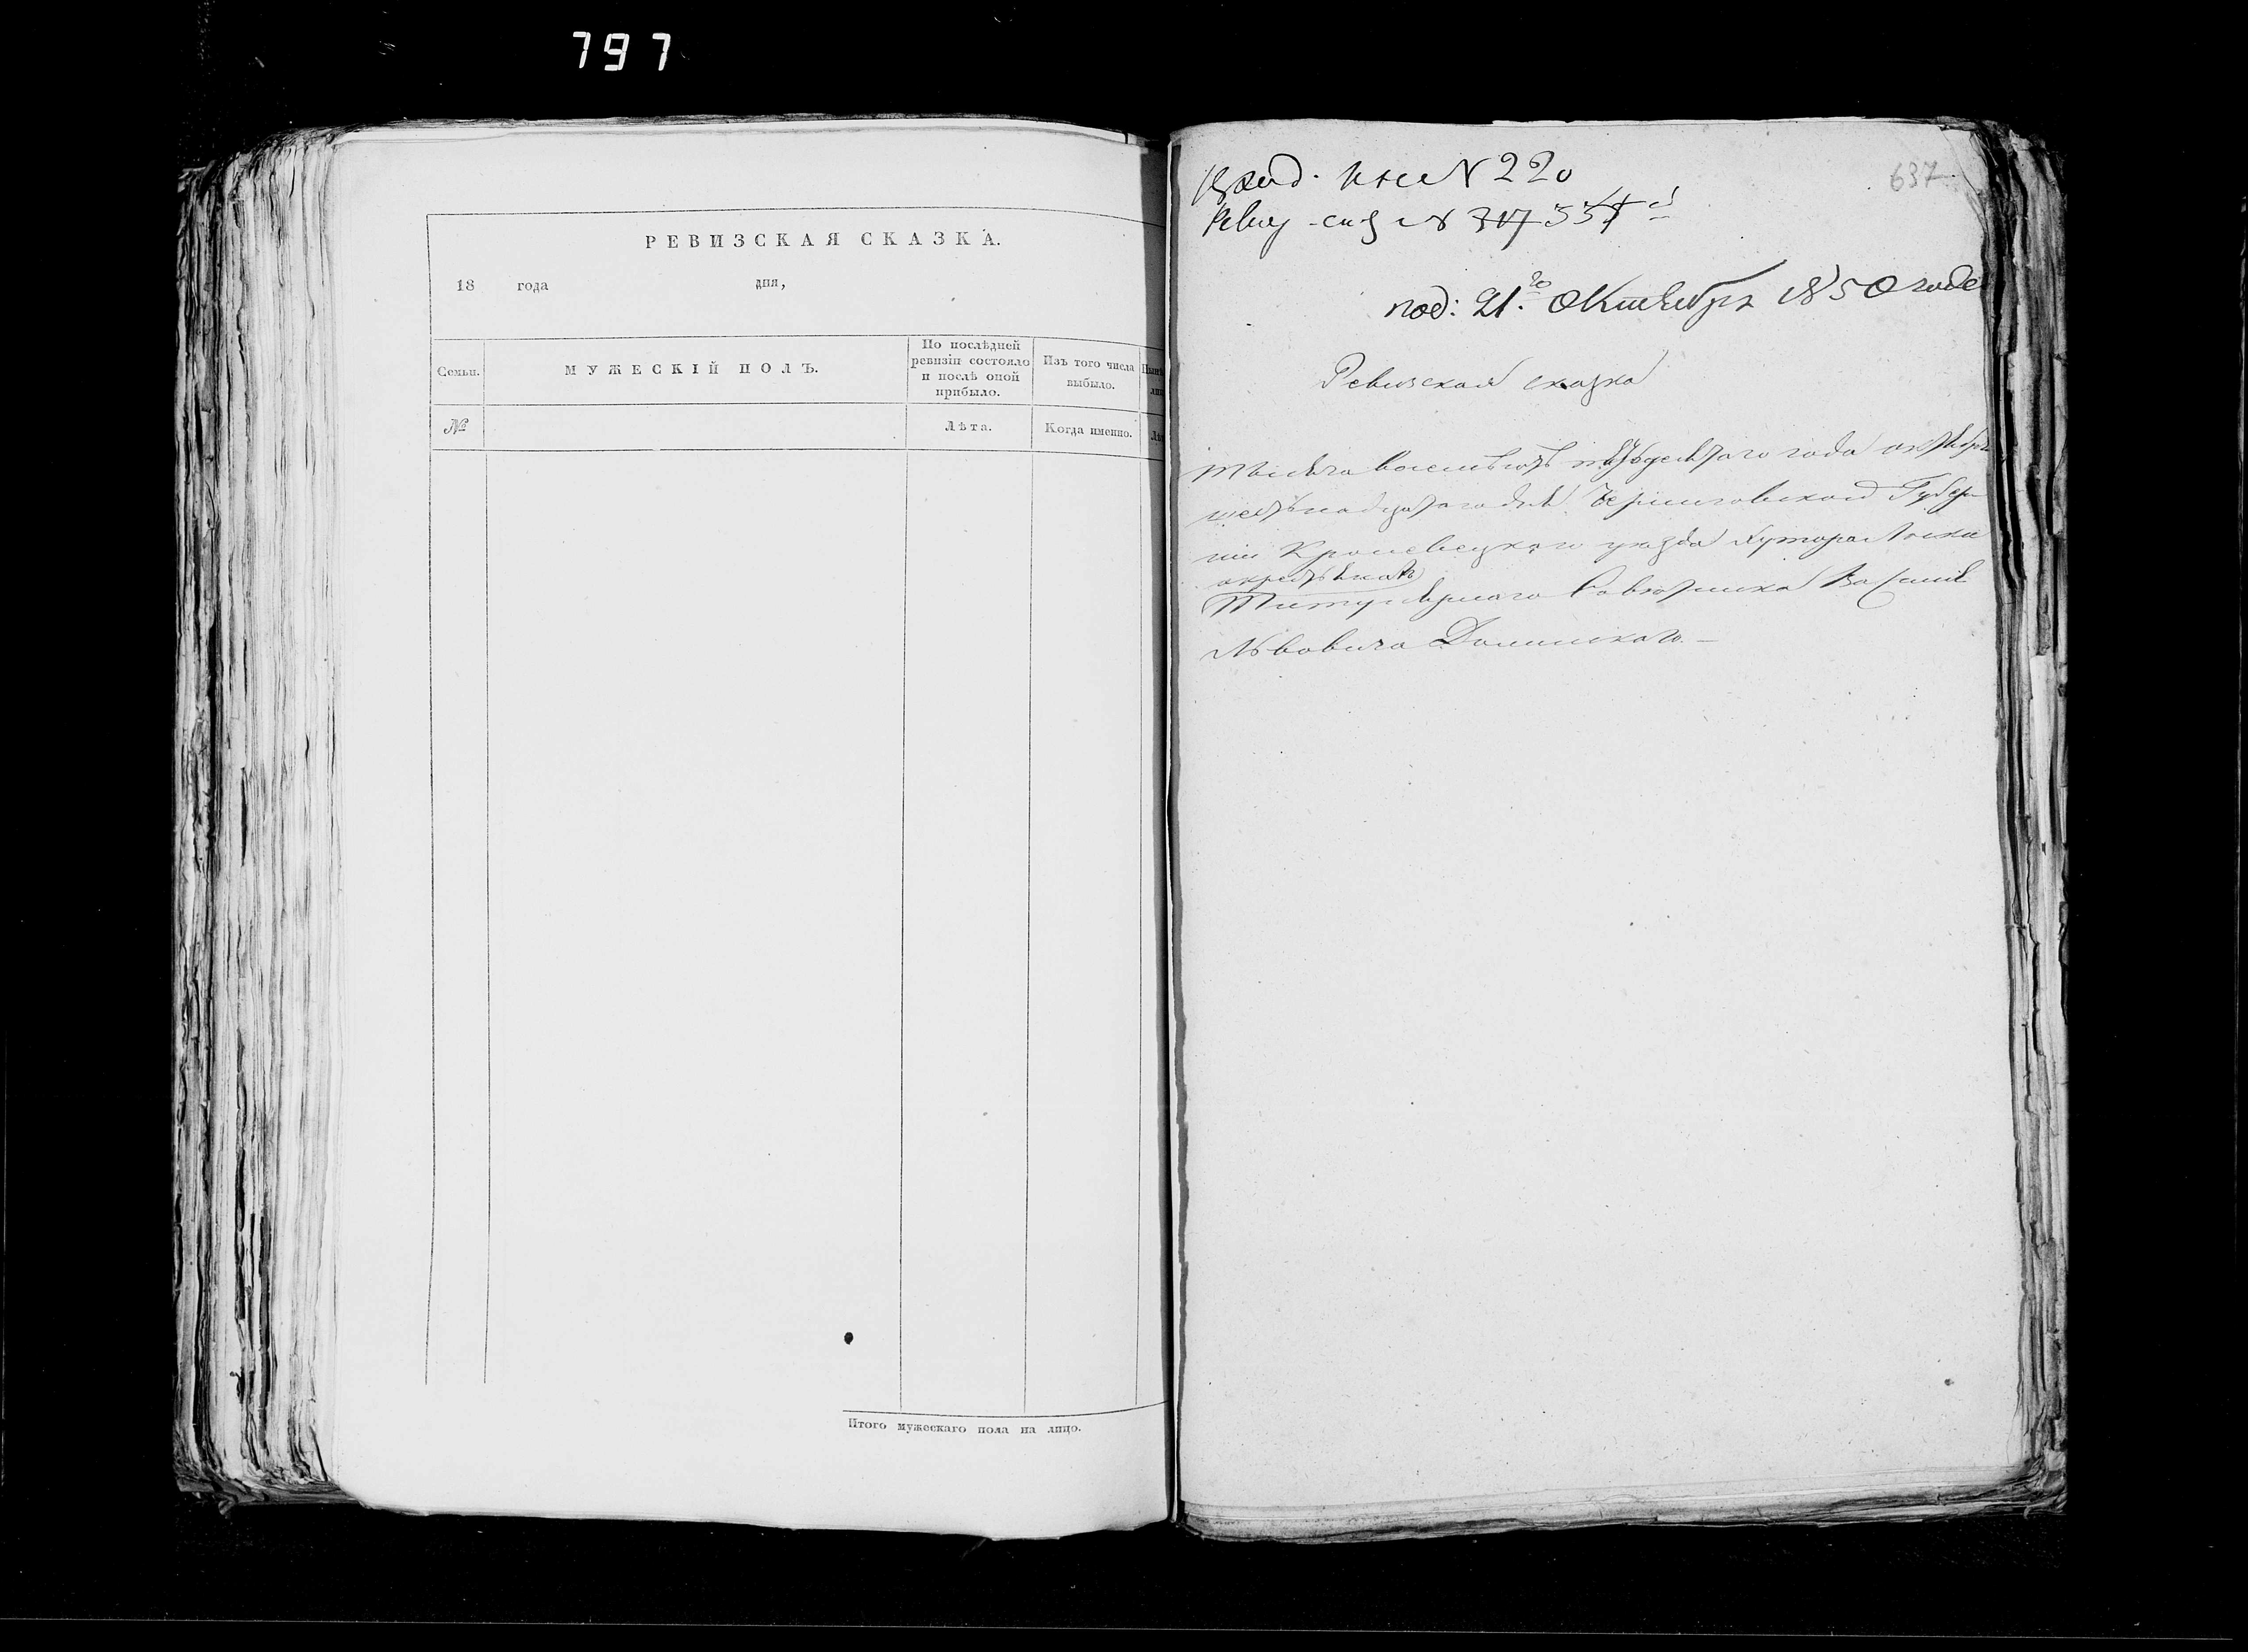 797
РЕВИЗСКАЯ СКАЗКА.
18 года дня,
Семьи.
МУЖЕСКІЙ ПОЛЪ.
По послѣдней
ревизіи состояло
и послѣ оной
прибыло.
Изъ того числа
выбыло.
№
Лѣта.
Когда именно.
Итого мужескаго пола на лицо.
637
№ 220
Ревиз. № 317
под: 21.го Октября 1850 года
Ревизская сказка
Тысяча восемьсотъ пятьдесятаго года октября
шестьнадцатаго дня Черниговской Губер-
ніи Кролевецкаго уезда Хутора
о крестьянахъ
Титулярнаго Советника Василія
Львовича Долинскаго.—